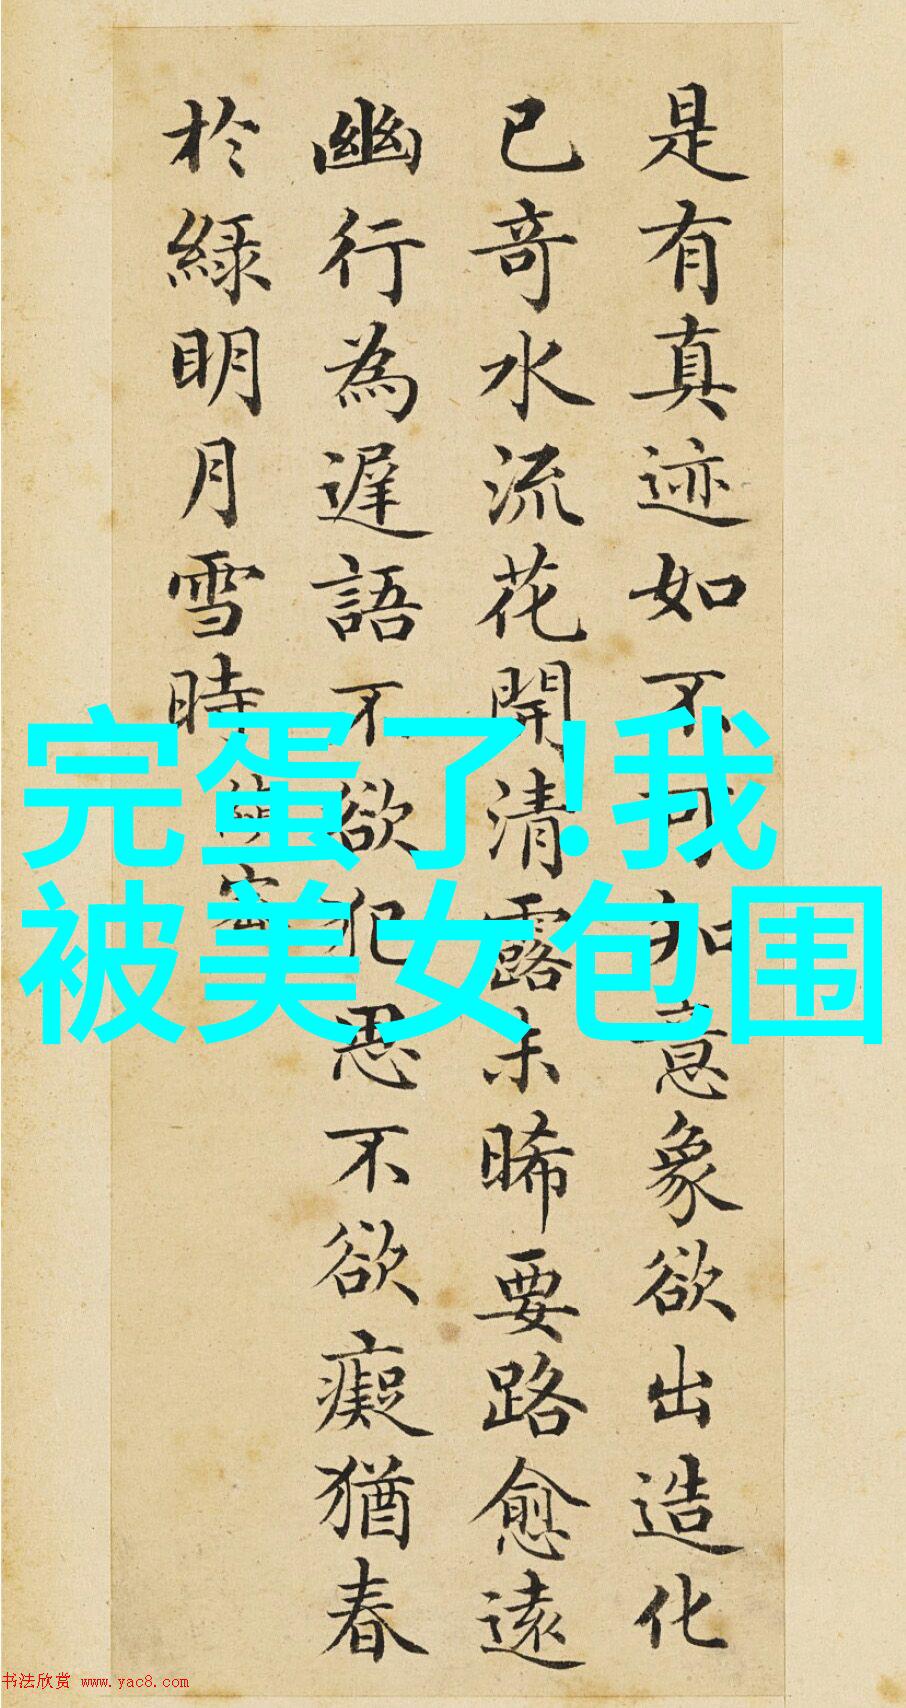 是有真迹如不可知意象欲出造化
已奇水流花開清露未晞要路愈遠
幽行為遲語不欲犯思不欲癡猶春
於綠明月雪時
完蛋了!我
被美女包围
书法欣赏 www.yac8.com